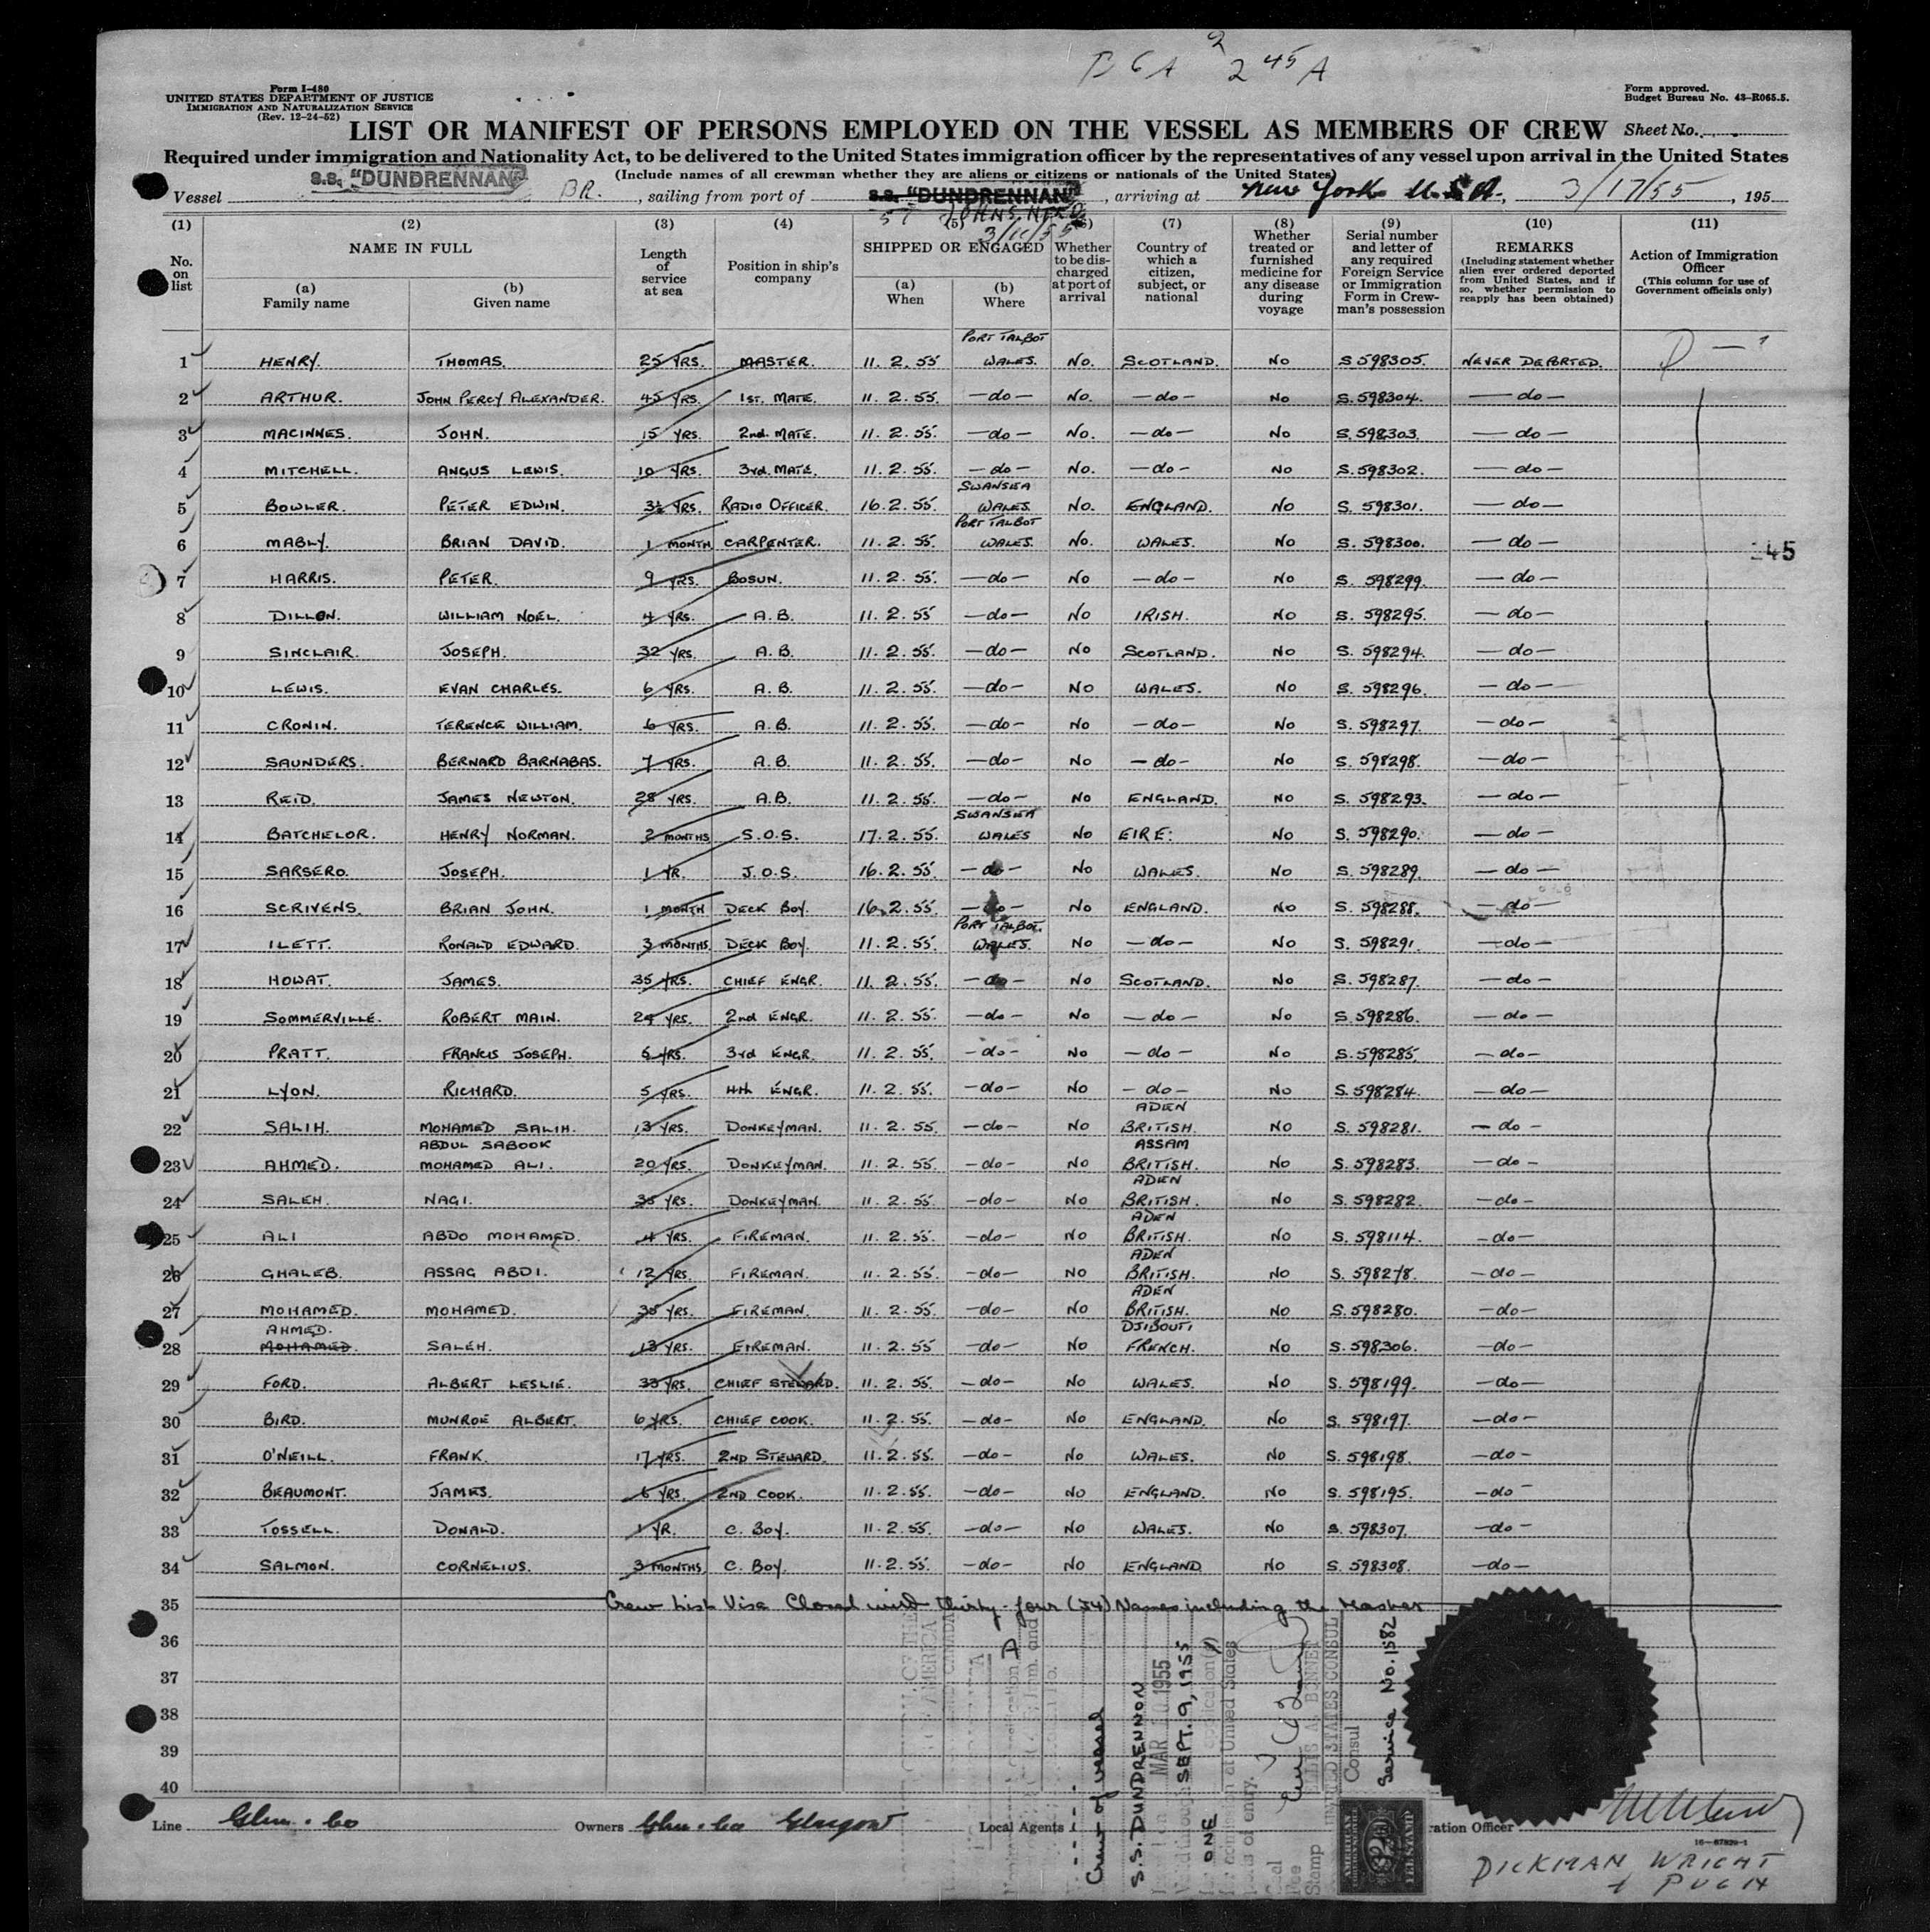 B 6 A 2 2 45 A
Form I-480
UNITED STATES DEPARTMENT OF JUSTICE
IMMIGRATION AND NATURALIZATION SERVICE
(Rev. 12-24-52)
Form approved.
Budget Bureau No. 43-R065.5.
LIST OR MANIFEST OF PERSONS EMPLOYED ON THE VESSEL AS MEMBERS OF CREW Sheet No.
Required under immigration and Nationality Act, to be delivered to the United States immigration officer by the representatives of any vessel upon arrival in the United States
(Include names of all crewman whether they are aliens or citizens or nationals of the United States)
Vessel S.S. "DUNDRENNAN" BR. , sailing from port of S.S. "DUNDRENNAN" , arriving at New York U.S.A., 3/17/55 , 195
ST JOHNS, NFLD
3/11/55
(1) (2) (3) (4) (5) (6) (7) (8) (9) (10) (11)
No. on list
NAME IN FULL
(a) Family name
(b) Given name
Length of service at sea
Position in ship's company
SHIPPED OR ENGAGED
(a) When
(b) Where
Whether to be discharged at port of arrival
Country of which a citizen, subject, or national
Whether treated or furnished medicine for any disease during voyage
Serial number and letter of any required Foreign Service or Immigration Form in Crewman's possession
REMARKS
(Including statement whether alien ever ordered deported from United States, and if so, whether permission to reapply has been obtained)
Action of Immigration Officer
(This column for use of Government officials only)
1 HENRY. THOMAS. 25 YRS. MASTER. 11. 2. 55 PORT TALBOT WALES. No. SCOTLAND. No S 598305. NEVER DEPORTED.
2 ARTHUR. JOHN PERCY ALEXANDER. 45 YRS. 1ST. MATE. 11. 2. 55. —do— No. —do— No S. 598304. —do—
3 MACINNES. JOHN. 15 YRS. 2nd. MATE. 11. 2. 55. —do— No. —do— No S. 598303. —do—
4 MITCHELL. ANGUS LEWIS. 10 YRS. 3rd. MATE. 11. 2. 55. —do— No. —do— No S. 598302. —do—
5 BOWLER. PETER EDWIN. 3½ YRS. RADIO OFFICER. 16. 2. 55. SWANSEA WALES. No. ENGLAND. No S. 598301. —do—
6 MABLY. BRIAN DAVID. 1 MONTH CARPENTER. 11. 2. 55. PORT TALBOT WALES. No. WALES. No S. 598300. —do—
245
7 HARRIS. PETER. 9 YRS. BOSUN. 11. 2. 55. —do— No —do— No S. 598299. —do—
8 DILLON. WILLIAM NOEL. 4 YRS. A.B. 11. 2. 55 —do— No IRISH. No S. 598295. —do—
9 SINCLAIR. JOSEPH. 32 YRS. A.B. 11. 2. 55. —do— No SCOTLAND. No S. 598294. —do—
10 LEWIS. EVAN CHARLES. 6 YRS. A.B. 11. 2. 55. —do— No WALES. No S. 598296. —do—
11 CRONIN. TERENCE WILLIAM. 6 YRS. A.B. 11. 2. 55. —do— No —do— No S. 598297. —do—
12 SAUNDERS. BERNARD BARNABAS. 7 YRS. A.B. 11. 2. 55. —do— No —do— No S. 598298. —do—
13 REID. JAMES NEWTON. 28 YRS. A.B. 11. 2. 55. —do— No ENGLAND. No S. 598293. —do—
14 BATCHELOR. HENRY NORMAN. 2 MONTHS S.O.S. 17. 2. 55. SWANSEA WALES No EIRE. No S. 598290. —do—
15 SARSERO. JOSEPH. 1 YR. J.O.S. 16. 2. 55. —do— No WALES. No S. 598289. —do—
16 SCRIVENS. BRIAN JOHN. 1 MONTH DECK BOY. 16. 2. 55. —do— No ENGLAND. No S. 598288. —do—
17 ILETT. RONALD EDWARD. 3 MONTHS. DECK BOY. 11. 2. 55. PORT TALBOT. WALES. No —do— No S. 598291. —do—
18 HOWAT. JAMES. 35 YRS. CHIEF ENGR. 11. 2. 55. —do— No SCOTLAND. No S. 598287. —do—
19 SOMMERVILLE. ROBERT MAIN. 24 YRS. 2nd ENGR. 11. 2. 55. —do— No —do— No S. 598286. —do—
20 PRATT. FRANCIS JOSEPH. 5 YRS. 3rd ENGR. 11. 2. 55. —do— No —do— No S. 598285. —do—
21 LYON. RICHARD. 5 YRS. 4th ENGR. 11. 2. 55. —do— No —do— No S. 598284. —do—
22 SALIH. MOHAMED SALIH. 13 YRS. DONKEYMAN. 11. 2. 55. —do— No ADEN BRITISH. No S. 598281. —do—
23 AHMED. ABDUL SABOOK MOHAMED ALI. 20 YRS. DONKEYMAN. 11. 2. 55. —do— No ASSAM BRITISH. No S. 598283. —do—
24 SALEH. NAGI. 35 YRS. DONKEYMAN. 11. 2. 55. —do— No ADEN BRITISH. No S. 598282. —do—
25 ALI ABDO MOHAMED. 4 YRS. FIREMAN. 11. 2. 55. —do— No ADEN BRITISH. No S. 598114. —do—
26 GHALEB. ASSAG ABDI. 12 YRS. FIREMAN. 11. 2. 55. —do— No ADEN BRITISH. No S. 598278. —do—
27 MOHAMED. MOHAMED. 35 YRS. FIREMAN. 11. 2. 55. —do— No ADEN BRITISH. No S. 598280. —do—
28 AHMED. MOHAMED. SALEH. 13 YRS. FIREMAN. 11. 2. 55 —do— No DJIBOUTI FRENCH. No S. 598306. —do—
29 FORD. ALBERT LESLIE. 33 YRS. CHIEF STEWARD. 11. 2. 55. —do— No WALES. No S. 598199. —do—
30 BIRD. MUNROE ALBERT. 6 YRS. CHIEF COOK. 11. 2. 55. —do— No ENGLAND. No S. 598197. —do—
31 O'NEILL. FRANK. 17 YRS. 2ND STEWARD. 11. 2. 55. —do— No WALES. No S. 598198. —do—
32 BEAUMONT. JAMES. 6 YRS. 2ND COOK. 11. 2. 55. —do— No ENGLAND. No S. 598195. —do—
33 TOSSELL. DONALD. 1 YR. C. BOY. 11. 2. 55. —do— No WALES. No S. 598307. —do—
34 SALMON. CORNELIUS. 3 MONTHS. C. BOY. 11. 2. 55. —do— No ENGLAND No S. 598308. —do—
35 Crew List Visa Closed with thirty-four (34) Names including the Master
36
37
38
39
40
Crew of vessel
S.S. DUNDRENNON
MAR 10 1955
SEPT. 9, 1955
ONE
admission at United States
of entry.
Fee Stamp
ELLIS A. BONNET
UNITED STATES CONSUL
Consul
Service No. 1582
AMERICAN FOREIGN SERVICE
$2
FEE STAMP
Line Glen & Co Owners Glen & Co Glasgow Local Agents ration Officer
16-67829-1
DICKMAN WRIGHT
& PUGH